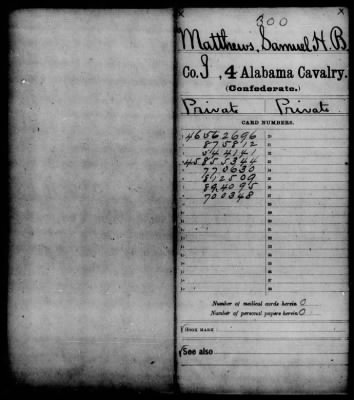 300
Matthews, Samuel H. B.
Co. I, 4 Alabama Cavalry.
(Confederate.)
Private Private
CARD NUMBERS.
46562696
875812
544141
45855344
770630
812509
894095
700348
Number of medical cards herein 0
Number of personal papers herein 0
BOOK MARK
See also